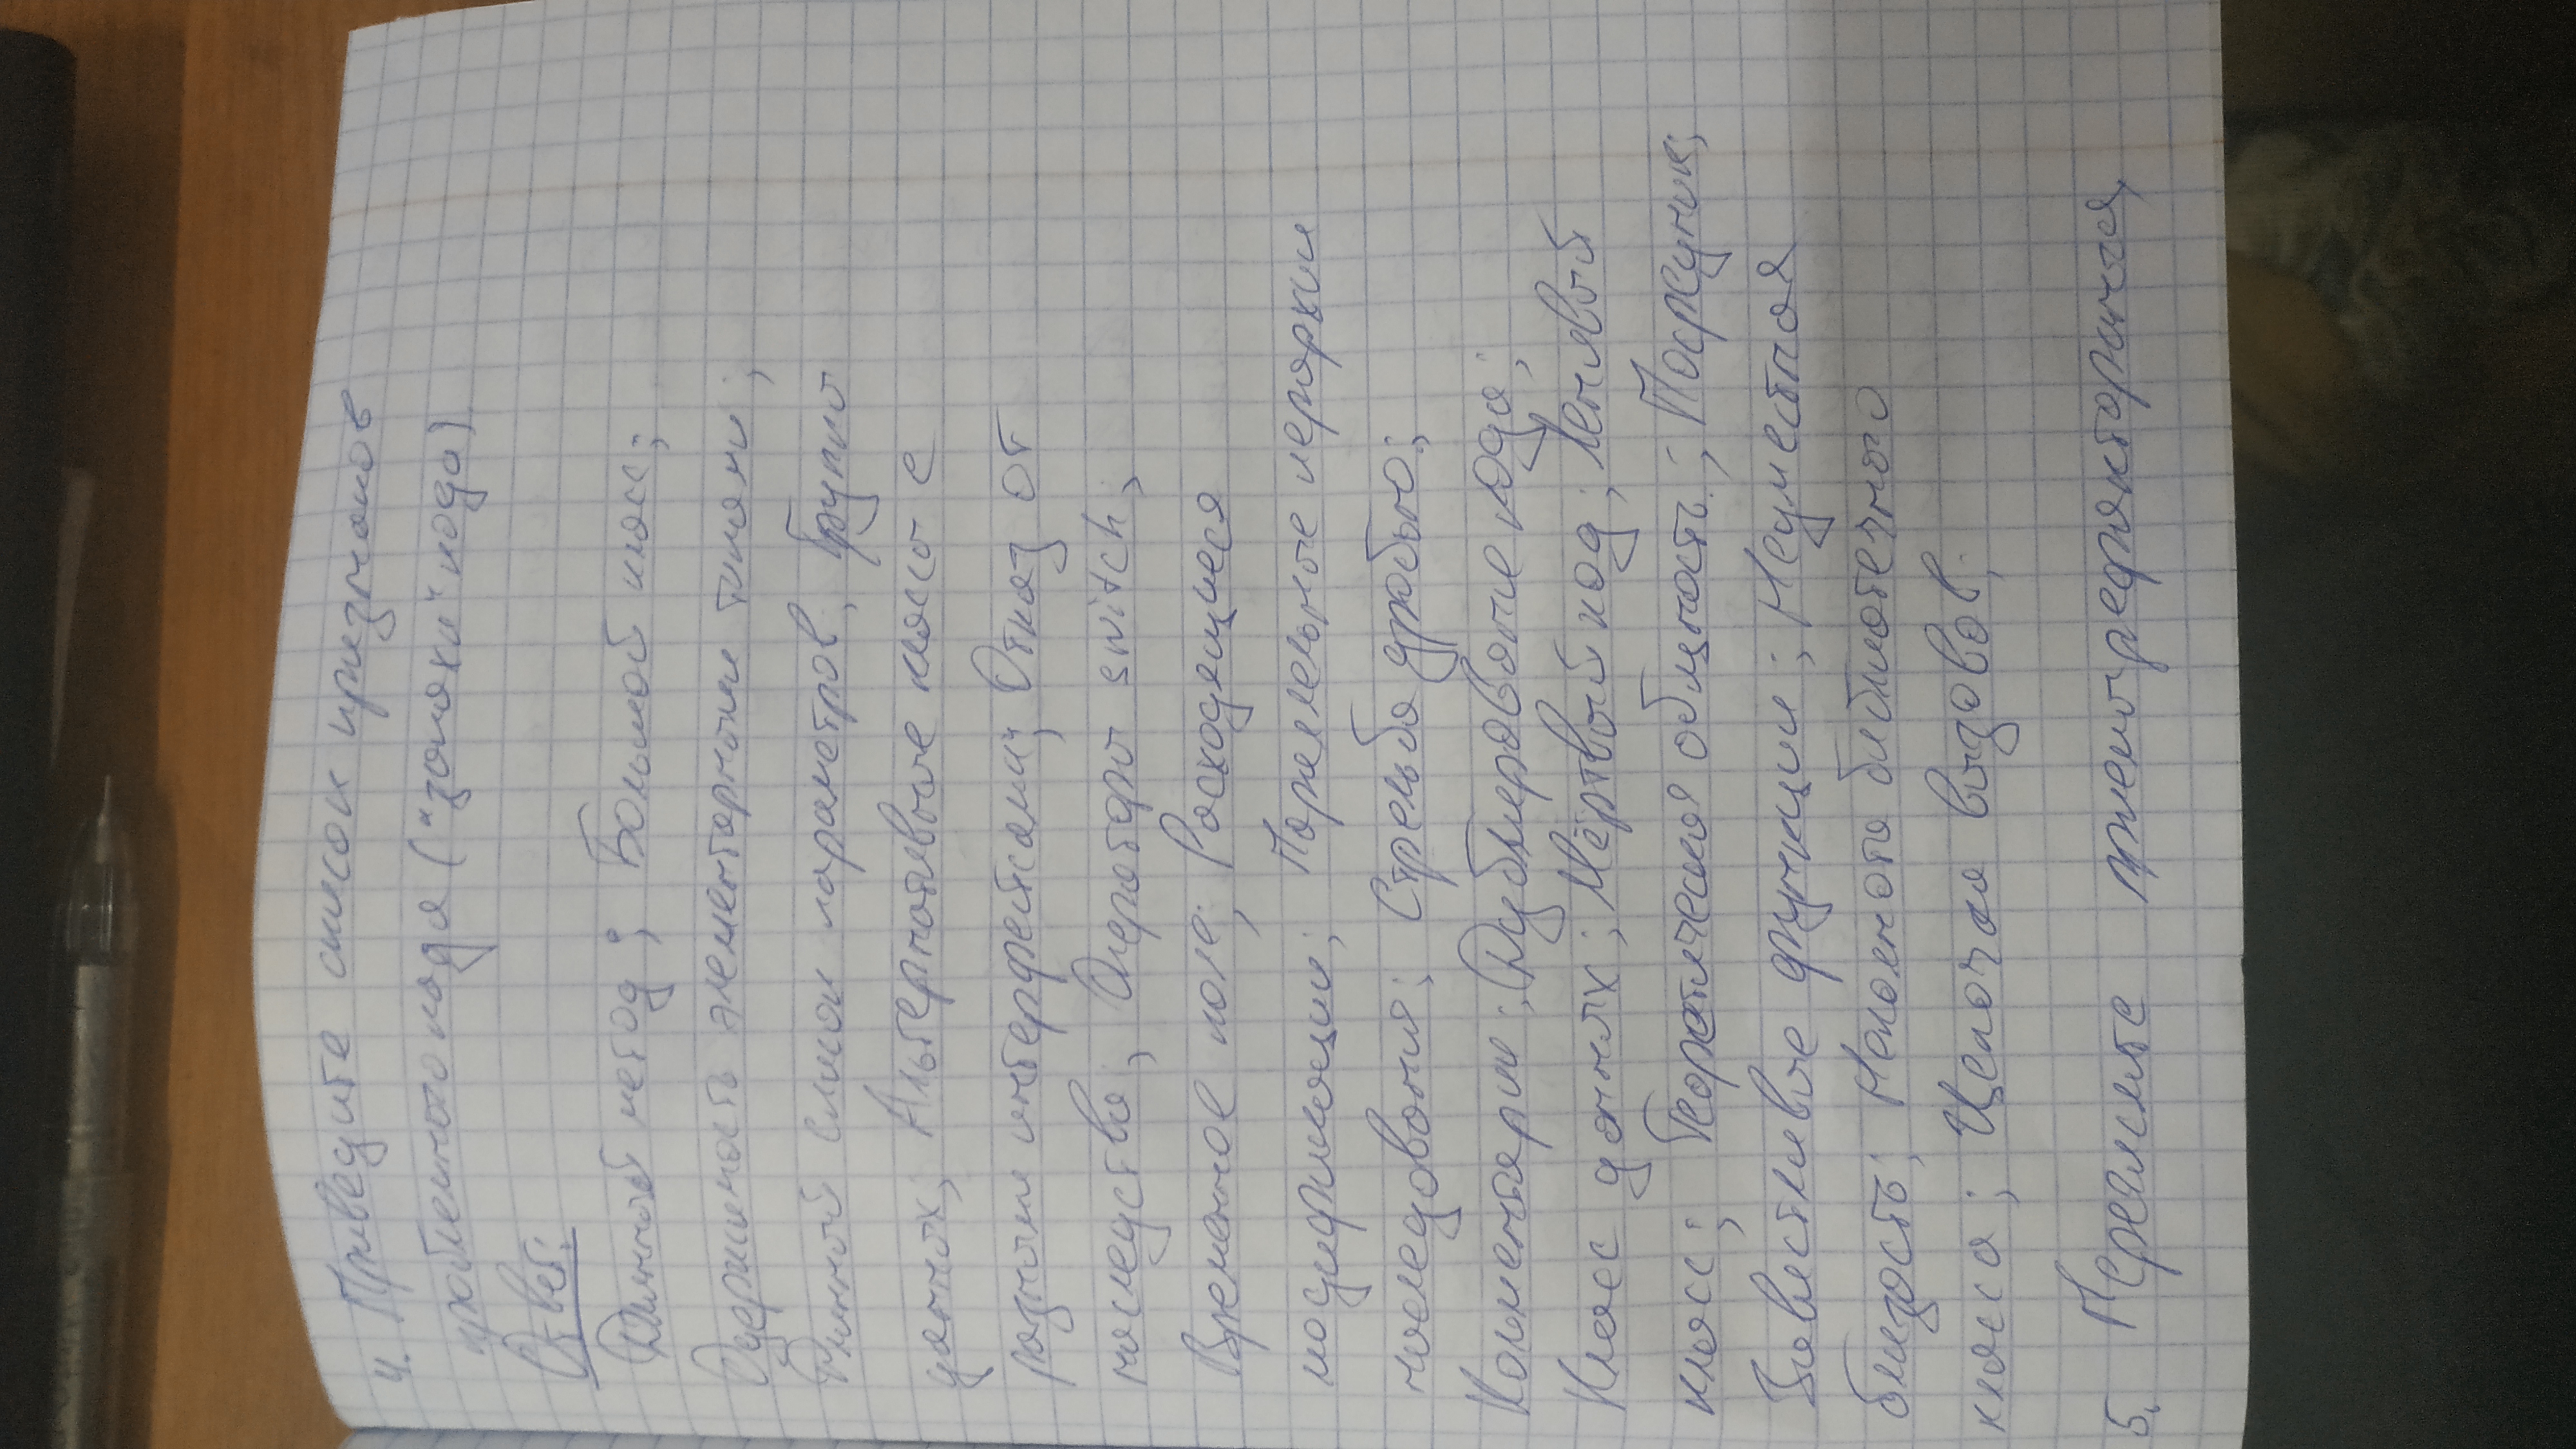 4. Приведите список признаков
проблемного кода ("запахи" кода)
Ответ:
Длинный метод; Большой класс;
Одержимость элементарными типами;
Длинный список параметров, Группы
данных; Альтернативные классы с
разными интерфейсами; Отказ от
наследства; Операторы switch;
Временное поле; Расходящиеся
модификации; Параллельные иерархии
наследования; Стрельба дробью;
Комментарии; Дублирование кода;
Класс данных; Мёртвый код; Ленивый
класс; Теоретическая общность; Посредник;
Завистливые функции; Неуместная
близость; Неполнота библиотечного
класса; Цепочка вызовов;
5. Перечислите приемы рефакторинга,